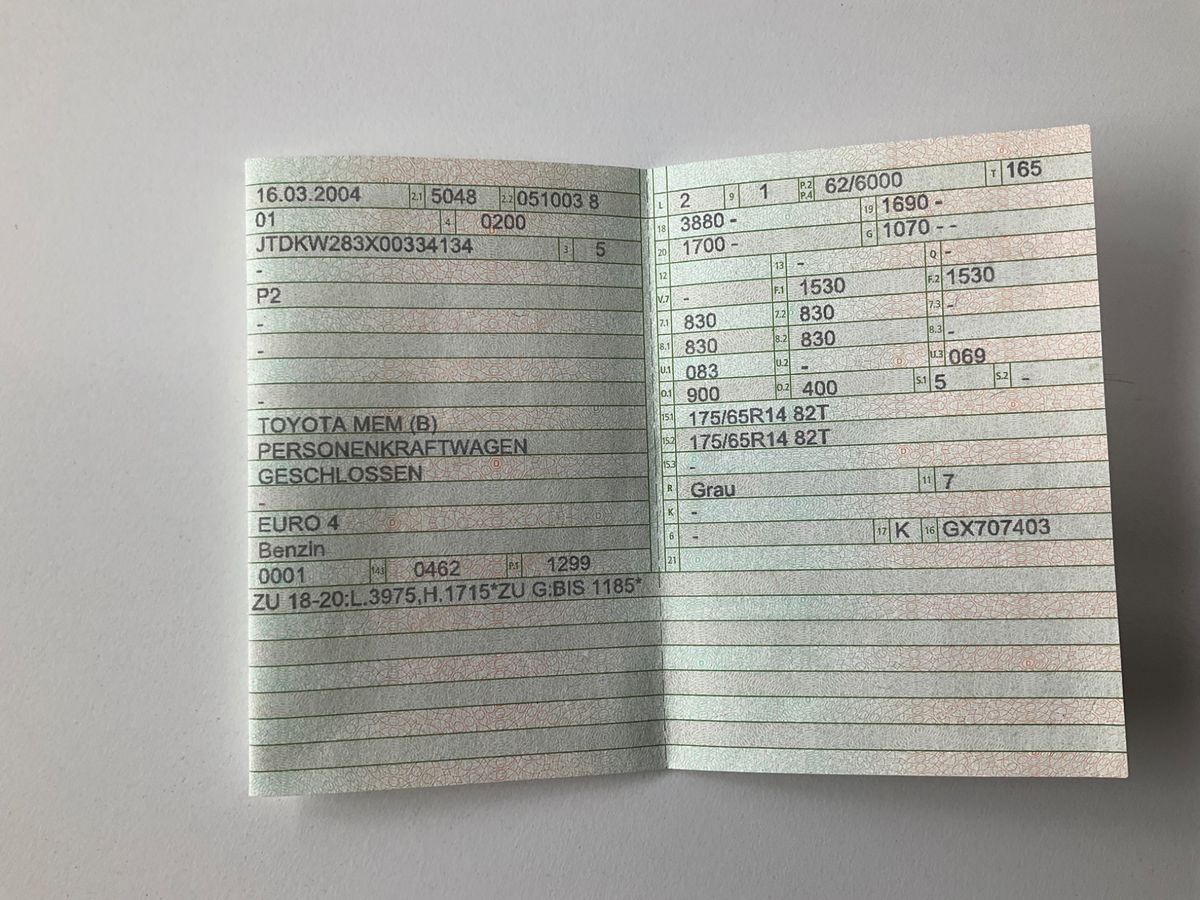 16.03.2004 2.1 5048 2.2 051003 8
01 4 0200
JTDKW283X00334134 3 5
-
P2
-
-
-
TOYOTA MEM (B)
PERSONENKRAFTWAGEN
GESCHLOSSEN
-
EURO 4
Benzin
0001 14.1 0462 P.1 1299
ZU 18-20:L.3975,H.1715*ZU G:BIS 1185*
L 2 9 1 P.2 P.4 62/6000 T 165
18 3880 - 19 1690 -
20 1700 - G 1070 - -
12 13 - Q -
V.7 - F.1 1530 F.2 1530
7.1 830 7.2 830 7.3 -
8.1 830 8.2 830 8.3 -
U.1 083 U.2 - U.3 069
O.1 900 O.2 400 S.1 5 S.2 -
15.1 175/65R14 82T
15.2 175/65R14 82T
15.3 -
R Grau 11 7
K -
6 - 17 K 16 GX707403
21